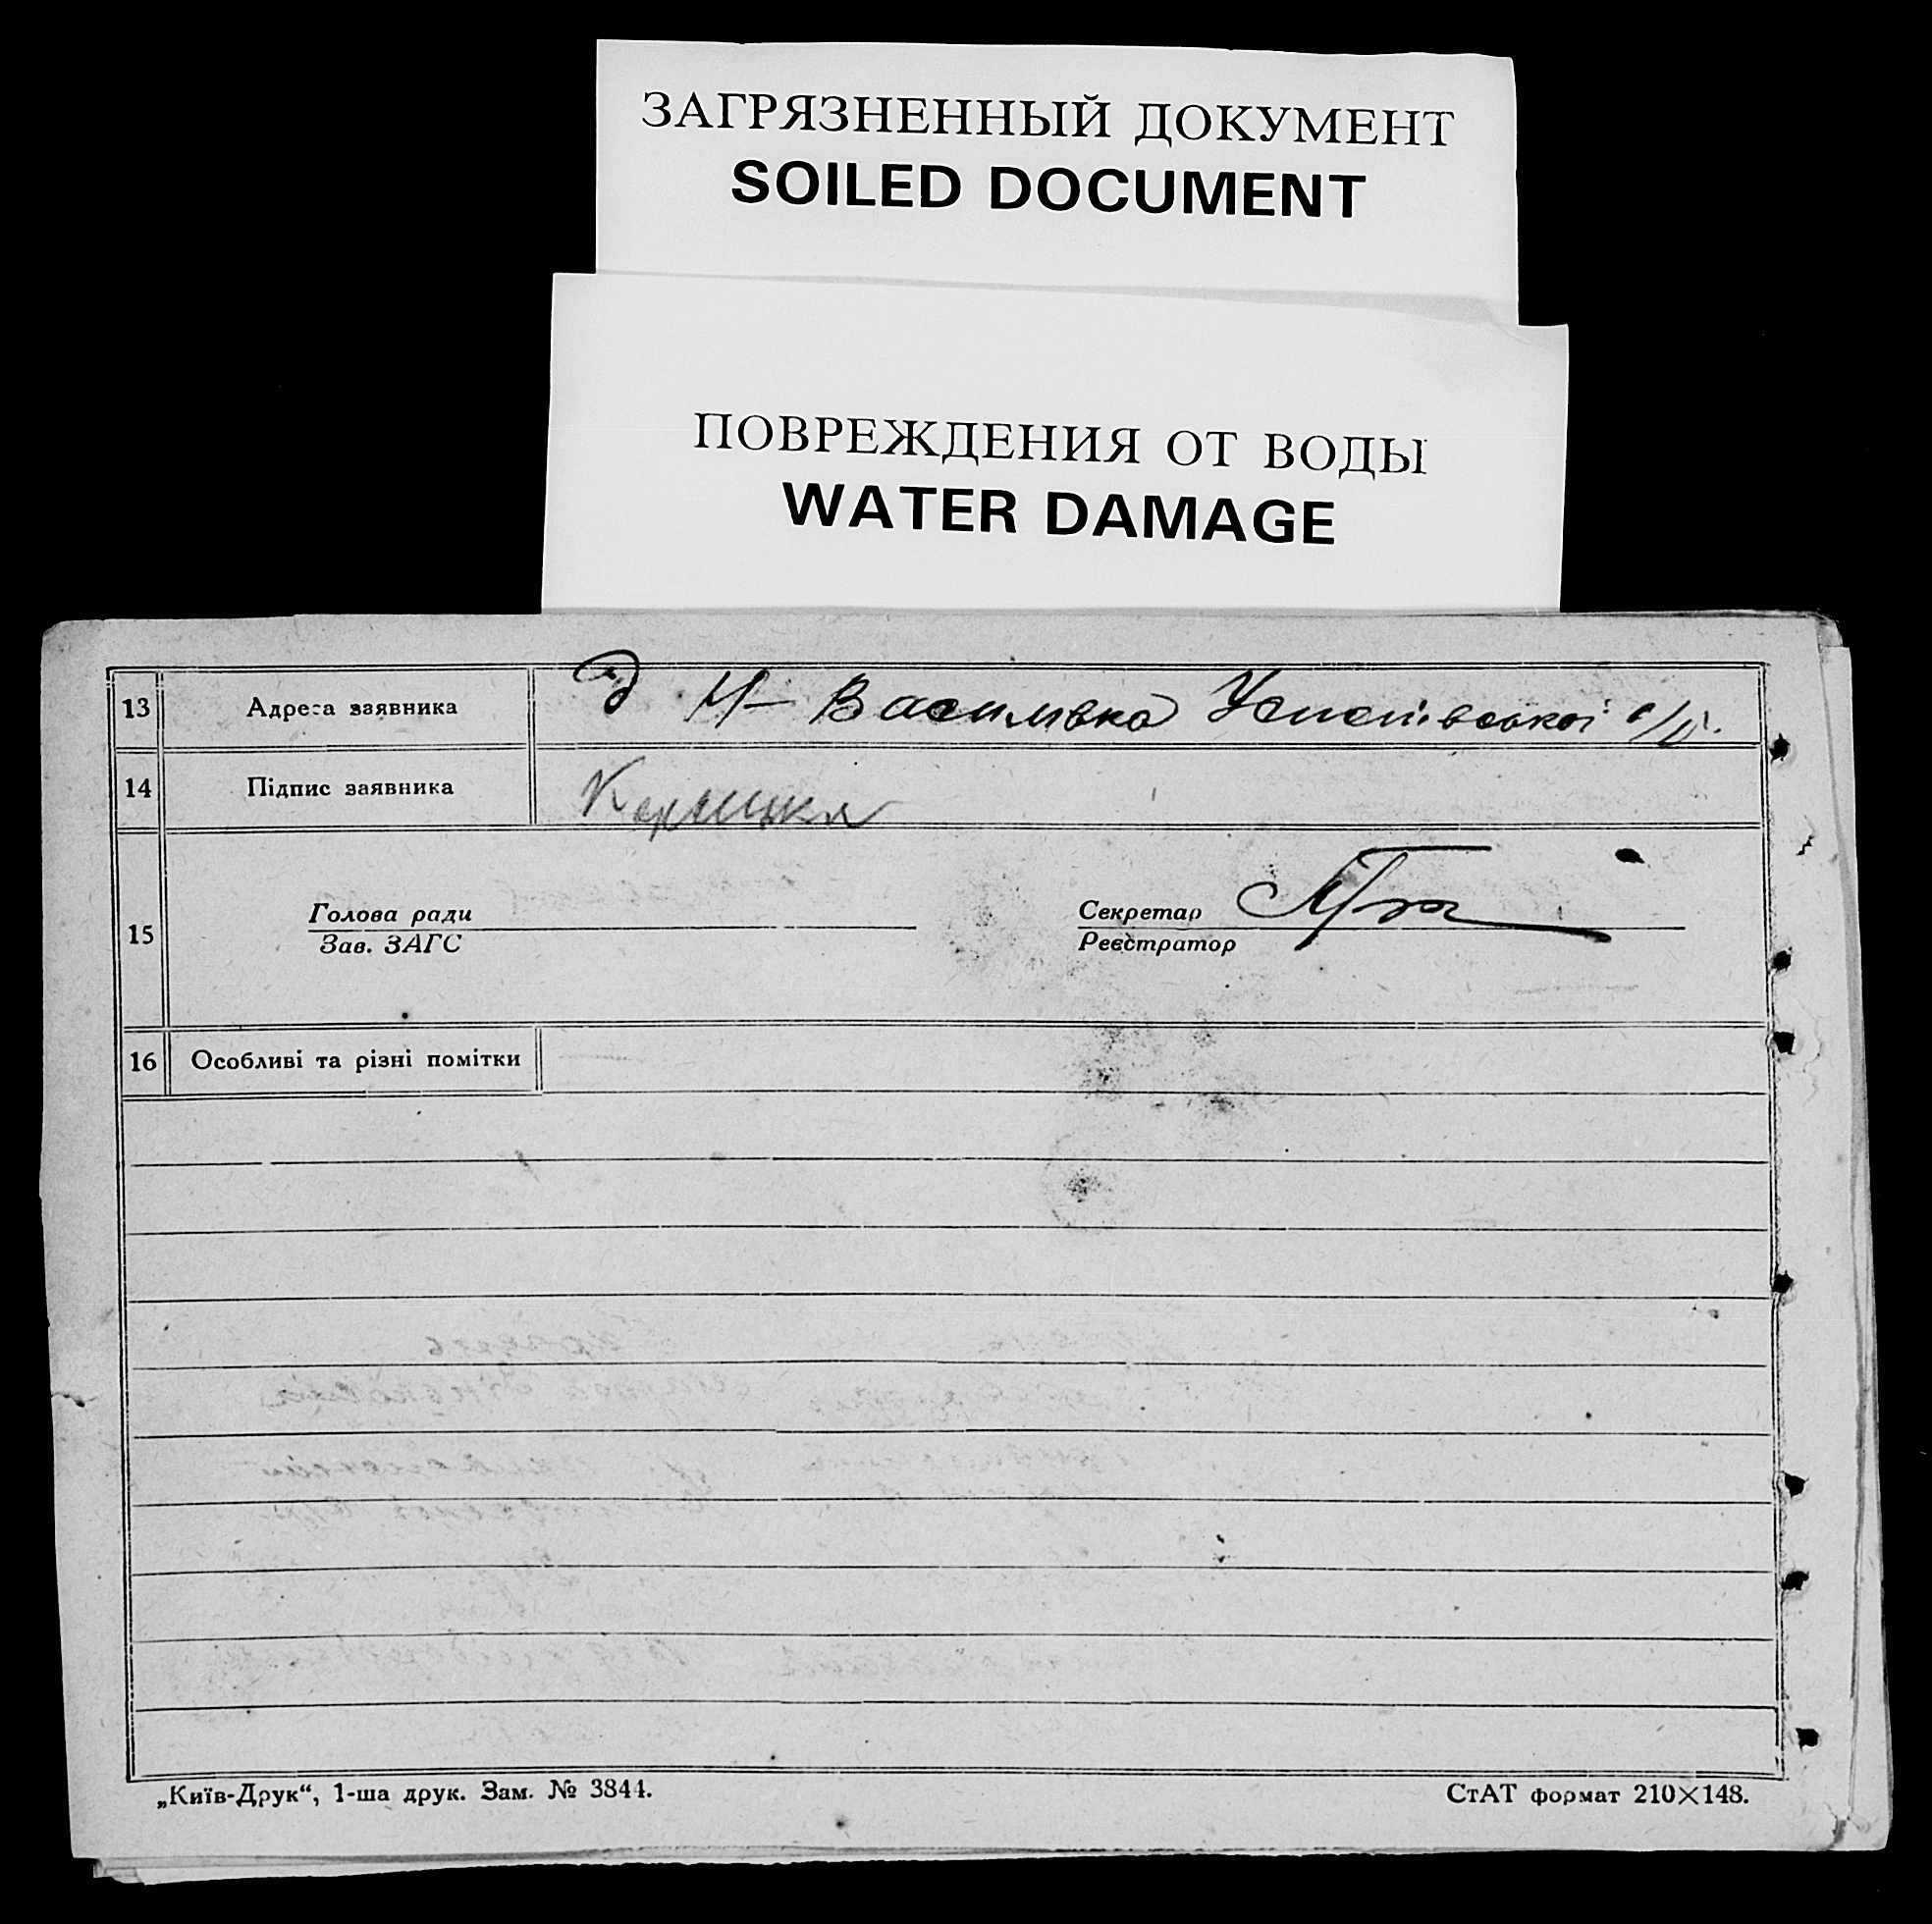 ЗАГРЯЗНЕННЫЙ ДОКУМЕНТ
SOILED DOCUMENT
ПОВРЕЖДЕНИЯ ОТ ВОДЫ
WATER DAMAGE
13 Адреса заявника Н- Василивка с/р.
14 Підпис заявника
15 Голова ради Секретар
Зав. ЗАГС Реєстратор
16 Особливі та різні помітки
„Київ-Друк“, 1-ша друк. Зам. № 3844. СтАТ формат 210×148.